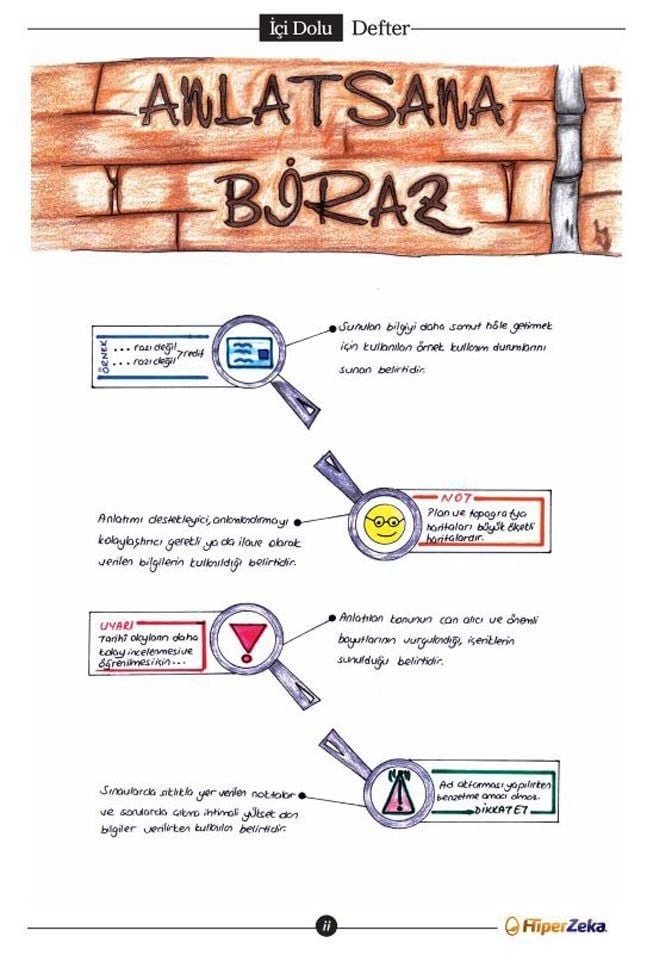 İçi Dolu Defter
ANLATSANA
BİRAZ
ÖRNEK
... razı değil
... razı değil > redif
Sunulan bilgiyi daha somut hâle getirmek
için kullanılan örnek kullanım durumlarını
sunan belirtidir.
Anlatımı destekleyici, anlamlandırmayı
kolaylaştırıcı gerekli ya da ilave olarak
verilen bilgilerin kullanıldığı belirtidir.
NOT
Plan ve topografya
haritaları büyük ölçekli
haritalardır.
UYARI
Tarihî olayların daha
kolay incelenmesi ve
öğrenilmesi için...
Anlatılan konunun can alıcı ve önemli
boyutlarının vurgulandığı, içeriklerin
sunulduğu belirtidir.
Sınavlarda sıklıkla yer verilen noktalar
ve sorularda çıkma ihtimali yüksek olan
bilgiler verilirken kullanılan belirtidir.
Ad aktarması yapılırken
benzetme amacı olmaz.
DİKKAT ET
ii
HiperZeka